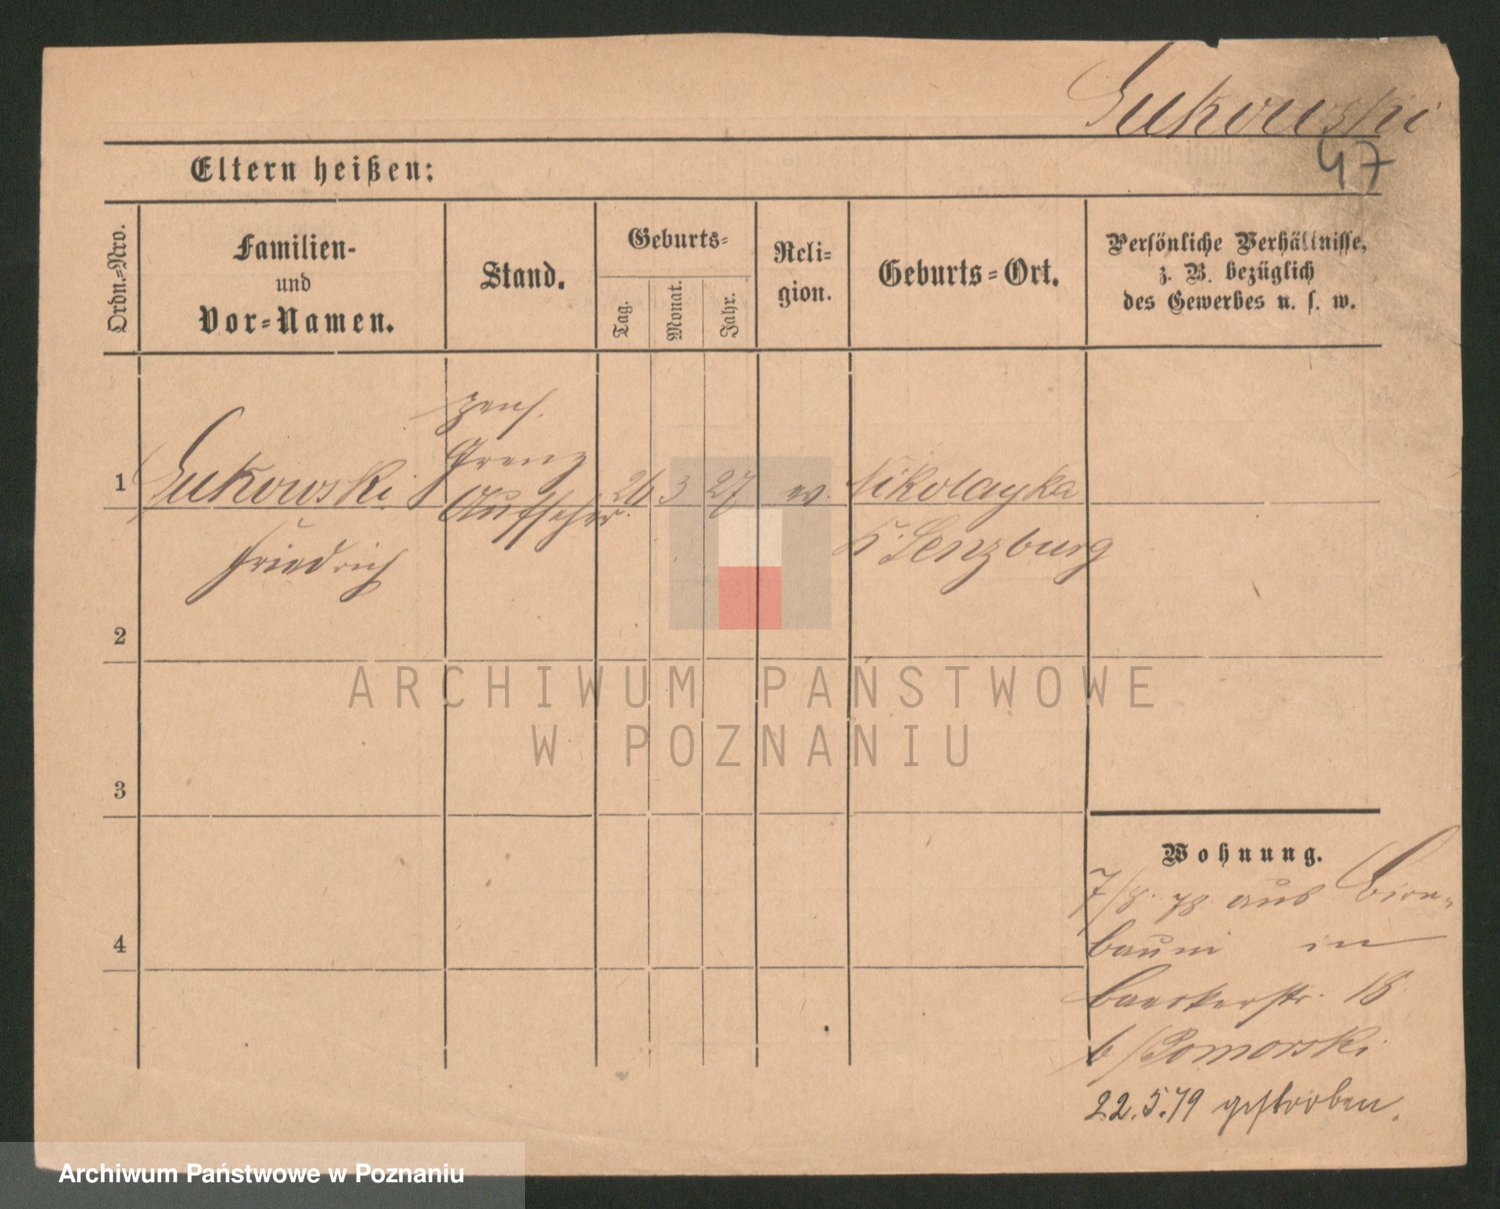 Gukowski
47
Eltern heißen:
Ordn.=Nro.
Familien-
und
Vor=Namen.
Stand.
Geburts=
Tag.
Monat.
Jahr.
Reli=
gion.
Geburts=Ort.
Persönliche Verhältnisse,
z. B. bezüglich
des Gewerbes u. s. w.
1
Gukowski
Friedrich
pens.
Grenz
Aufseher.
26 3 27 ev.
Nikolayka
K. Senzburg
2
3
4
Wohnung.
7/8. 78 aus Birn-
baum in
Baeckerstr. 18
b/Pomorski
22.5.79 gestorben.
ARCHIWUM PAŃSTWOWE
W POZNANIU
Archiwum Państwowe w Poznaniu